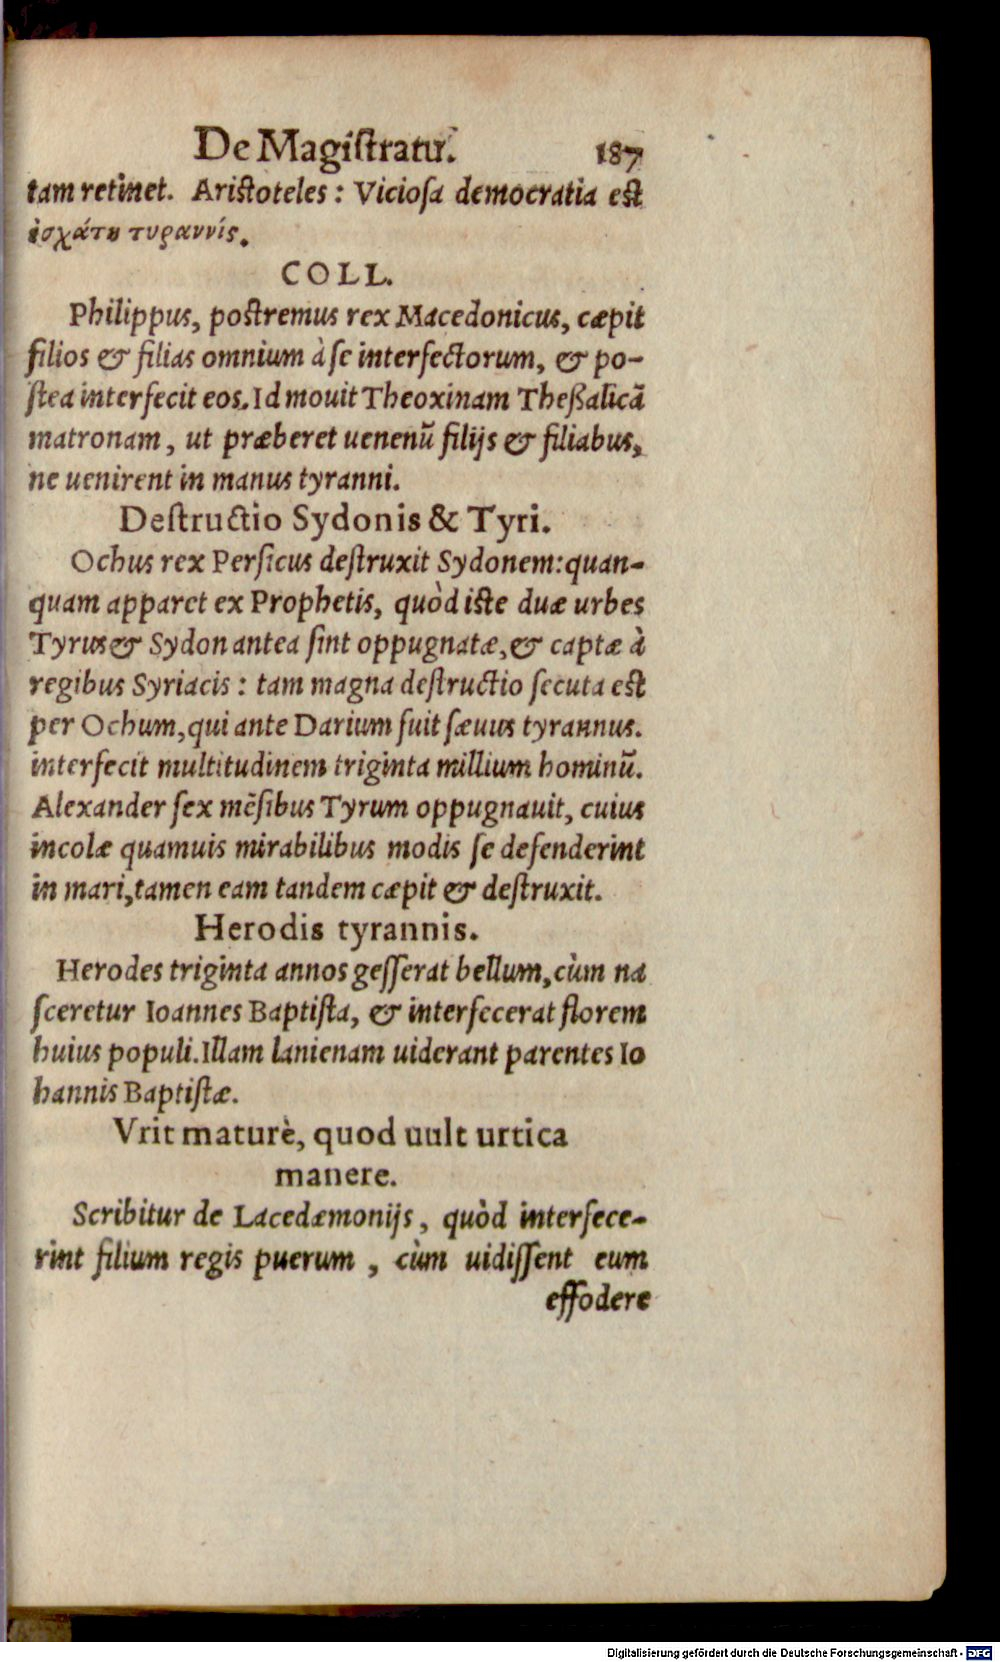 De Magiſtratu. 187
tam retinet. Ariſtoteles : Vicioſa democratia eſt
ἐσχάτη τυραννίς.
COLL.
Philippus, poſtremus rex Macedonicus, cæpit
filios & filias omnium à ſe interfectorum, & po-
ſtea interfecit eos. Id mouit Theoxinam Theßalicã
matronam, ut præberet uenenũ filijs & filiabus,
ne uenirent in manus tyranni.
Deſtructio Sydonis & Tyri.
Ochus rex Perſicus deſtruxit Sydonem: quan-
quam apparet ex Prophetis, quòd iſte duæ urbes
Tyrus & Sydon antea ſint oppugnatæ, & captæ à
regibus Syriacis : tam magna deſtructio ſecuta eſt
per Ochum, qui ante Darium fuit ſæuus tyrannus.
interfecit multitudinem triginta millium hominũ.
Alexander ſex mẽſibus Tyrum oppugnauit, cuius
incolæ quamuis mirabilibus modis ſe defenderint
in mari, tamen eam tandem cæpit & deſtruxit.
Herodis tyrannis.
Herodes triginta annos geſſerat bellum, cùm na
ſceretur Ioannes Baptiſta, & interfecerat florem
huius populi. Illam lanienam uiderant parentes Io
hannis Baptiſtæ.
Vrit maturè, quod uult urtica
manere.
Scribitur de Lacedæmonijs, quòd interfece-
rint filium regis puerum, cùm uidiſſent eum
effodere
Digitalisierung gefördert durch die Deutsche Forschungsgemeinschaft - DFG